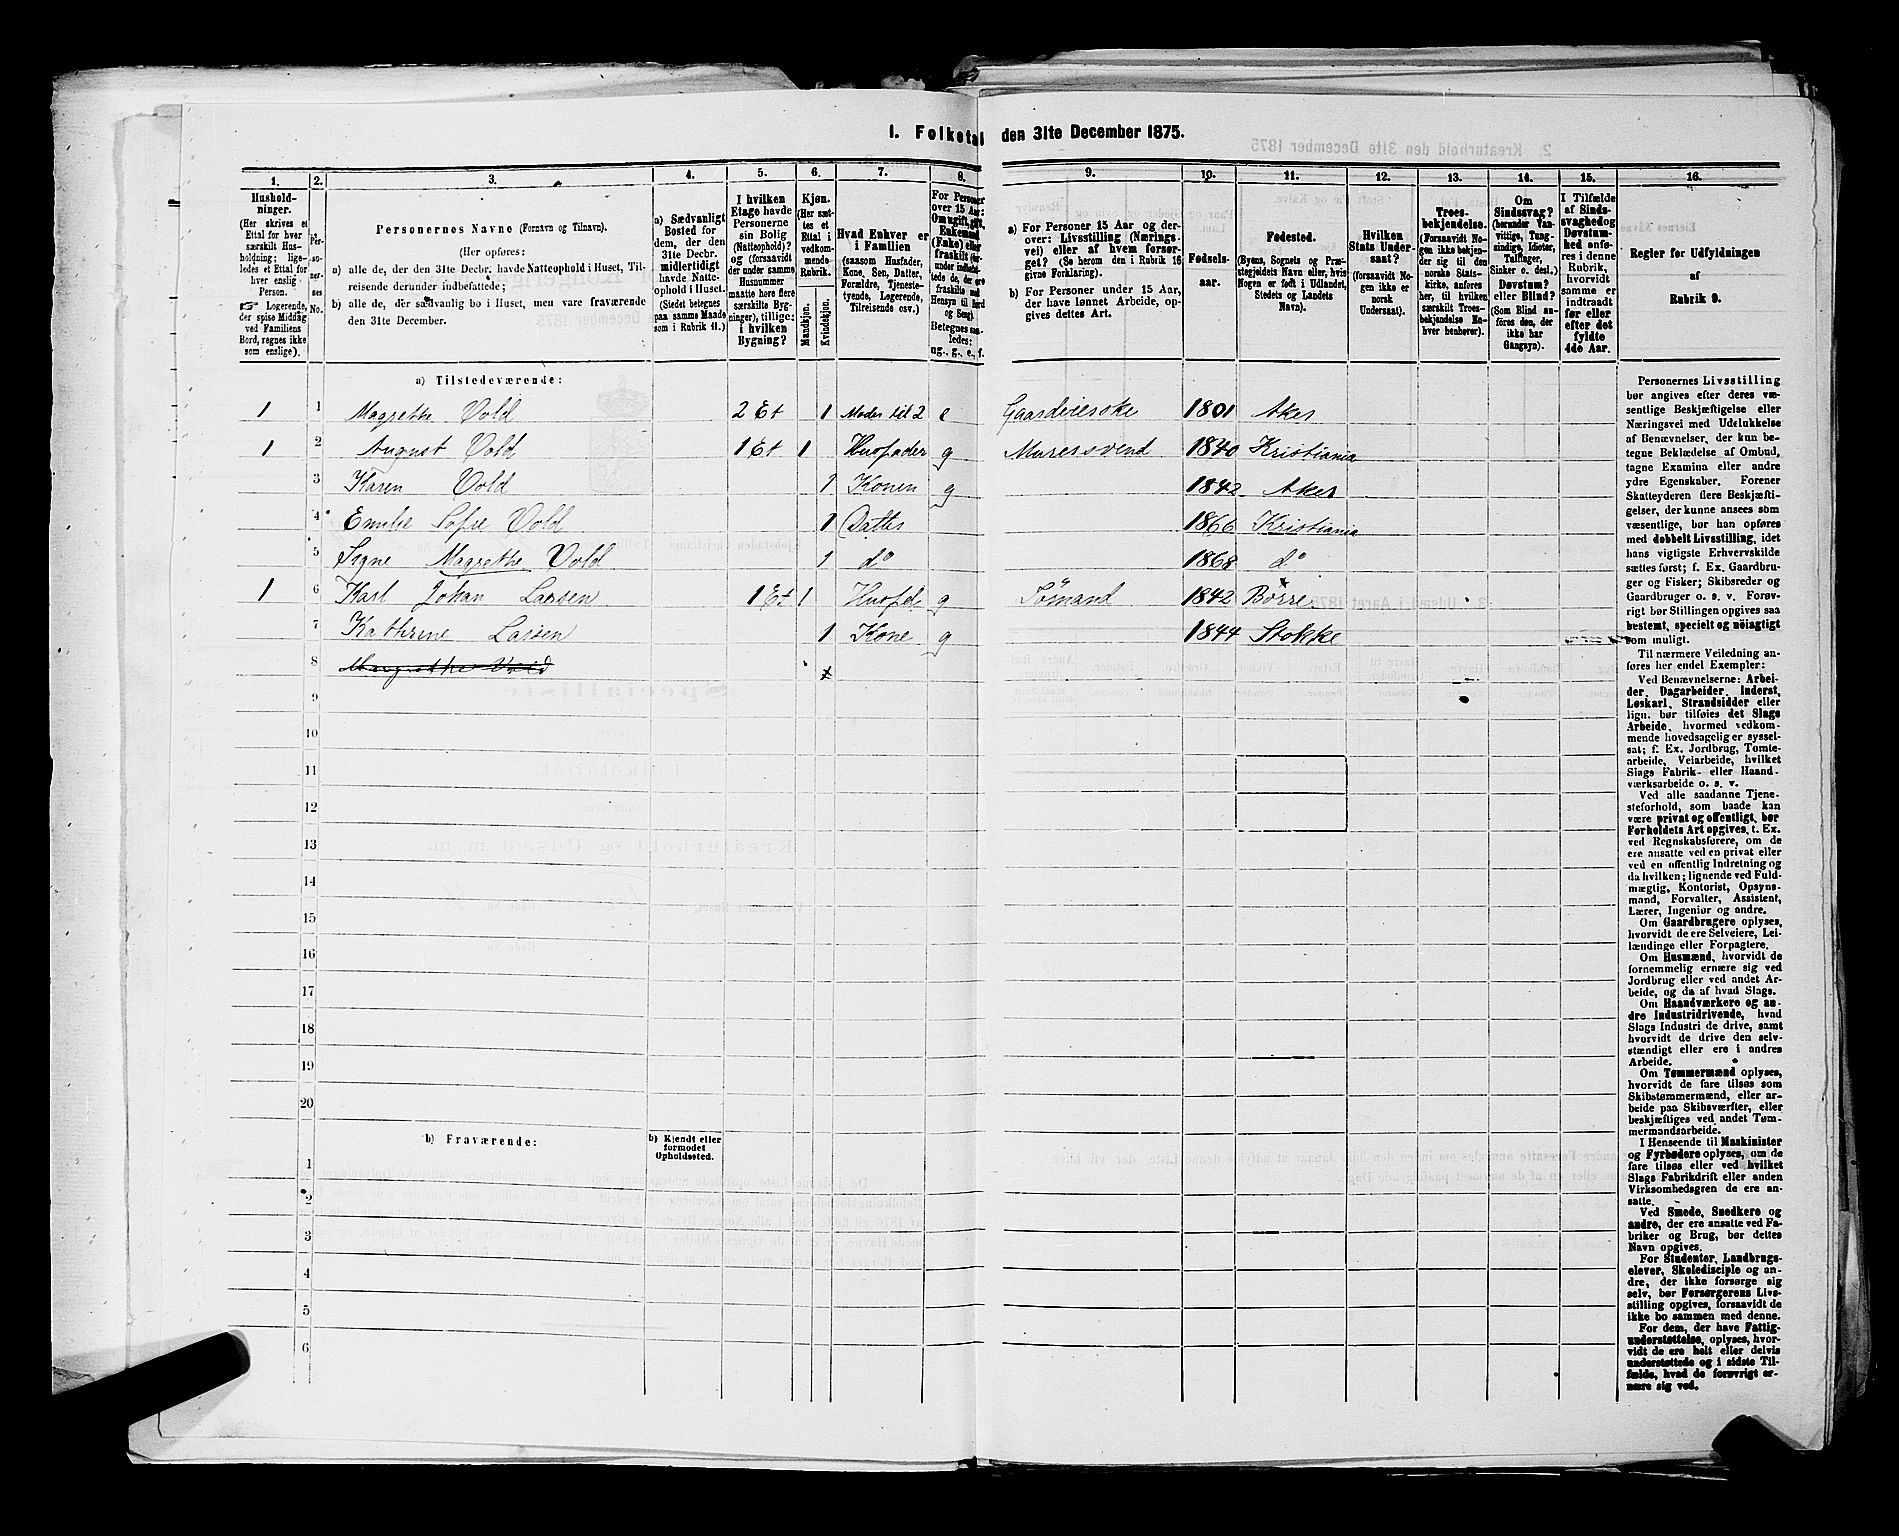 1. Folketal den 31te December 1875.
1. 2. 3. 4. 5. 6. 7. 8. 9. 10. 11. 12. 13. 14. 15. 16.
Husholdninger.
(Her skrives et
Ettal for hver
særskilt Husholdning; ligeledes
et Ettal for
hver enslig
Person.
Logerende,
der spise Middag
ved Familiens
Bord, regnes ikke
som enslige).
Personernes No.
Personernes Navne (Fornavn og Tilnavn).
(Her opføres:
a) alle de, der den 31te Decbr. havde Natteophold i Huset, Tilreisende
derunder indbefattede;
b) alle de, der sædvanlig bo i Huset, men vare fraværende
den 31te December.
a) Sædvanligt
Bosted for
dem, der den
31te Decbr.
midlertidigt
havde Natteophold
i Huset.
(Stedet betegnes
paa samme Maade
som i Rubrik 11.)
I hvilken
Etage havde
Personerne
sin Bolig
(Natteophold)?
og (forsaavidt
der under samme
Husnummer
maatte høre flere
særskilte Bygninger),
tillige:
i hvilken
Bygning?
Kjøn.
(Her sættes
et
Ettal i
vedkommende
Rubrik.
Mandkjøn.
Kvindekjøn.
Hvad Enhver er
i Familien
(saasom Husfader,
Kone, Søn, Datter,
Forældre, Tjenestetyende,
Logerende,
Tilreisende osv.)
For Personer
over 15 Aar:
Om ugift, gift,
Enkemand
(Enke) eller
fraskilt
Betegnes saaledes:
ug., g., e., f.
a) For Personer 15 Aar og derover:
Livsstilling (Næringsvei)
eller af hvem forsørget?
(Se herom den i Rubrik 16
givne Forklaring).
b) For Personer under 15 Aar,
der have lønnet Arbeide, opgives
dettes Art.
Fødselsaar.
Fødested.
(Byens, Sognets og Præstegjeldets
Navn eller, hvis
Nogen er født i Udlandet,
Stedets og Landets
Navn).
Hvilken
Stats Undersaat?
(forsaavidt Nogen
ikke er
norsk
Undersaat).
Troesbekjendelse.
(Forsaavidt Nogen
ikke bekjender
sig til den
norske Statskirke,
anføres
her, til hvilken
særskilt Troesbekjendelse
Enhver
henhører).
Om
Sindssvag?
(herunder Vanvittige,
Tungsindige,
Idioter,
Tullinger,
Sinker o. desl.)
Døvstum?
eller Blind?
(Som Blind anføres
den, der
ikke har
Gangsyn).
I Tilfælde
af Sindssvaghed
og
Døvstumhed
anføres
i denne
Rubrik,
hvorvidt
samme er
indtraadt
før eller
efter det
fyldte
4de Aar.
Regler for Udfyldningen
af
Rubrik 9.
a) Tilstedeværende:
1 1 Magrethe Vold 2 Et 1 Moder til 2 e Gaardeierske 1801 Aker
1 2 August Vold 1 Et 1 Husfader g Murersvend 1840 Kristiania
3 Karen Vold 1 Konen g 1842 Aker
4 Emilie Sofie Vold 1 Datter 1866 Kristiania
5 Signe Magrethe Vold 1 do 1868 do
1 6 Karl Johan Larsen 1 Et 1 Husfd. g Sømand 1842 Borre
7 Kathrine Larsen 1 Kone g 1844 Stokke
8 Margrethe Vold
9
10
11
12
13
14
15
16
17
18
19
20
b) Fraværende:
b) Kjendt eller
formodet
Opholdssted.
1
2
3
4
5
6
Personernes Livsstilling
bør angives efter deres væsentlige
Beskjæftigelse eller
Næringsvei med Udelukkelse
af Benævnelser, der kun betegne
Beklædelse af Ombud,
tagne Examina eller andre
ydre Egenskaber. Forener
Skatteyderen flere Beskjæftigelser,
der kunne ansees som
væsentlige, bør han opføres
med dobbelt Livsstilling, idet
hans vigtigste Erhvervskilde
sættes først; f. Ex. Gaardbruger
og Fisker; Skibsreder og
Gaardbruger o. s. v. Forøvrigt
bør Stillingen opgives saa
bestemt, specielt og nøiagtigt
som muligt.
Til nærmere Veiledning anføres
her endel Exempler:
Ved Benævnelserne: Arbeider,
Dagarbeider, Inderst,
Løskarl, Strandsidder eller
lign. bør tilføies det Slags
Arbeide, hvormed vedkommende
hovedsagelig er sysselsat;
f. Ex. Jordbrug, Tomtearbeide,
Veiarbeide, hvilket
Slags Fabrik- eller Haandværksarbeide
o. s. v.
Ved alle saadanne Tjenesteforhold,
som baade kan
være privat og offentligt, bør
Forholdets Art opgives, t. Ex.
ved Regnskabsførere, om de
ere ansatte ved en privat eller
ved en offentlig Indretning og
da hvilken; lignende ved Fuldmægtig,
Kontorist, Opsynsmand,
Forvalter, Assistent,
Lærer, Ingeniør og andre.
Om Gaardbrugere oplyses,
hvorvidt de ere Selveiere, Leilændinge
eller Forpagtere.
Om Husmænd, hvorvidt de
fornemmelig ernære sig ved
Jordbrug eller ved andet Arbeide,
og da af hvad Slags.
Om Haandværkere og andre
Industridrivende, hvad
Slags Industri de drive, samt
hvorvidt de drive den selvstændigt
eller ere i andres
Arbeide.
Om Tømmermænd oplyses,
hvorvidt de fare tilsøs som
Skibstømmermænd, eller arbeide
paa Skibsværfter, eller
beskjæftiges ved andet Tømmermandsarbeide.
I Henseende til Maskinister
og Fyrbødere oplyses, om de
fare tilsøs eller ved hvilket
Slags Fabrikdrift eller anden
Virksomhedsgren de ere ansatte.
Ved Smede, Snedkere og
andre, der ere ansatte ved Fabriker
og Brug, bør dettes
Navn opgives.
For Studenter, Landbrugselever,
Skoledisciple og andre,
der ikke forsørge sig
selv, bør Forsørgerens Livsstilling
opgives, forsaavidt de
ikke bo sammen med denne.
For dem, der have Fattigunderstøttelse,
oplyses, hvorvidt
de ere helt eller delvis
understøttede og i sidste Tilfælde,
hvad de forøvrigt ernære
sig ved.